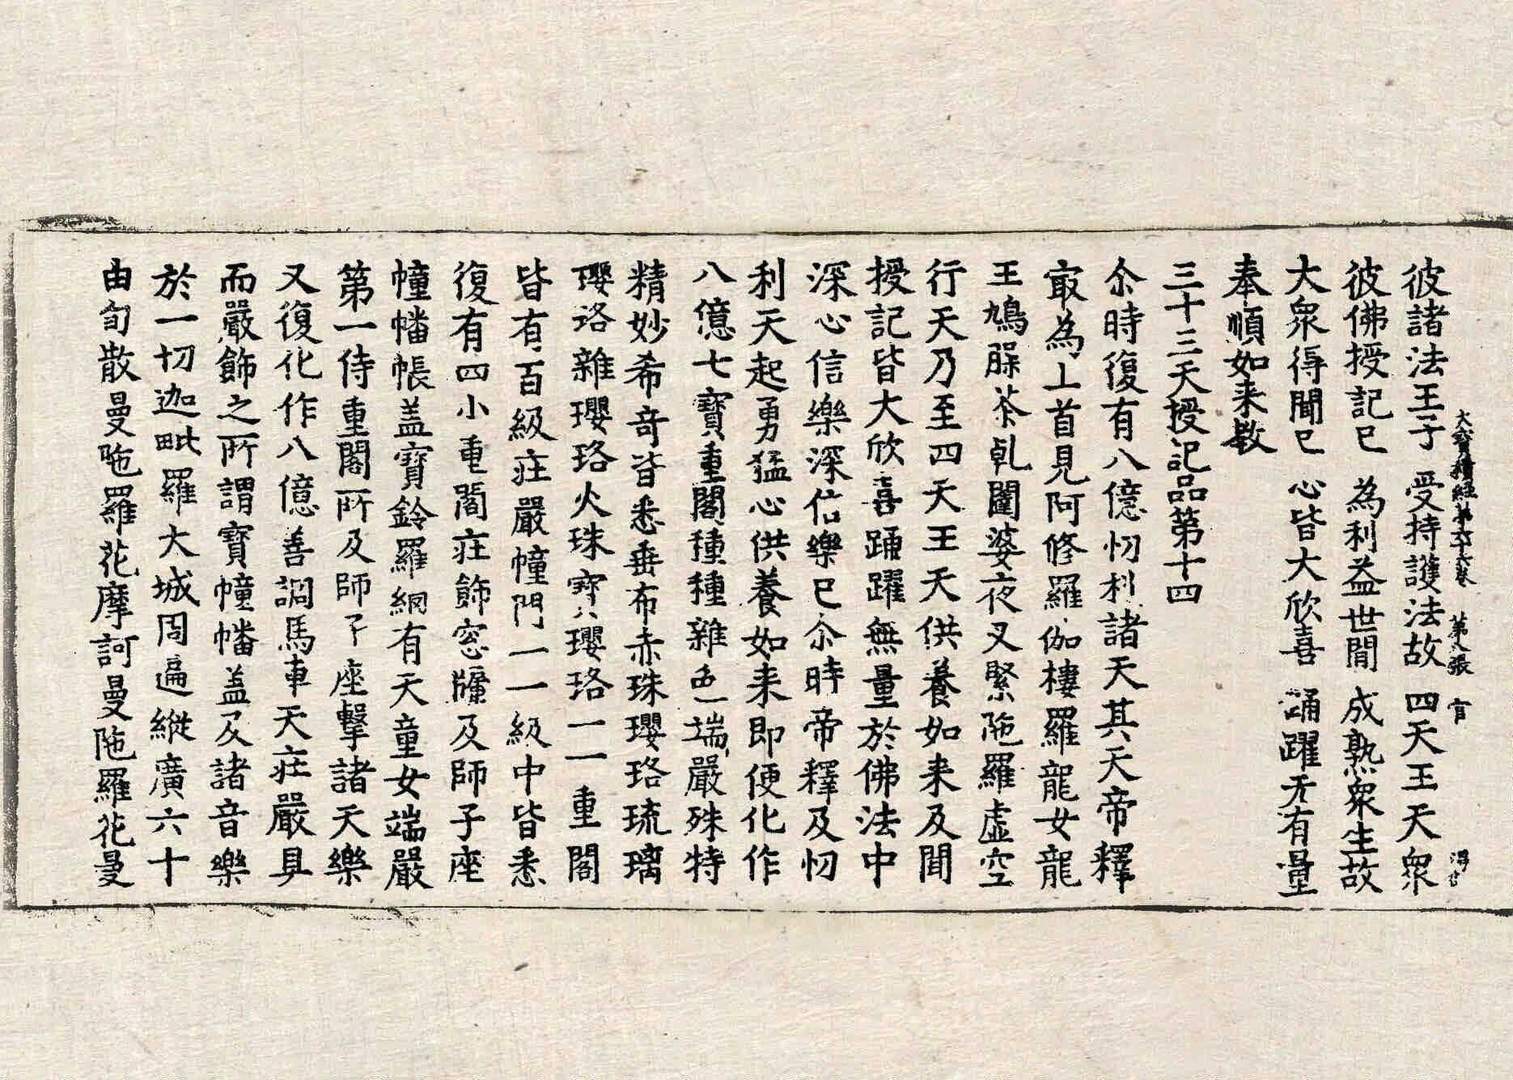 大寶積經第六十六卷 第八張 官
彼諸法王子 受持護法故 四天王天衆
彼佛授記已 為利益世間 成熟衆生故
大衆得聞已 心皆大欣喜 踊躍无有量
奉順如来敎
三十三天授記品第十四
尒時復有八億忉利諸天其天帝釋
㝡為上首見阿修羅伽樓羅龍女龍
王鳩槃茶乹闥婆夜叉緊陁羅虛空
行天乃至四天王天供養如来及聞
授記皆大欣喜踊躍無量於佛法中
深心信樂深信樂已尒時帝釋及忉
利天起勇猛心供養如来即便化作
八億七寶重閣種種雜色端嚴殊特
精妙希奇皆悉垂布赤珠瓔珞琉璃
瓔珞雜瓔珞火珠寶瓔珞一一重閣
皆有百級莊嚴幢門一一級中皆悉
復有四小重閣莊飾窓牖及師子座
幢幡帳盖寶鈴羅網有天童女端嚴
第一侍重閣所及師子座擊諸天樂
又復化作八億善調馬車天莊嚴具
而嚴飾之所謂寶幢幡盖及諸音樂
於一切迦毗羅大城周遍縱廣六十
由旬散曼陁羅花摩訶曼陁羅花曼